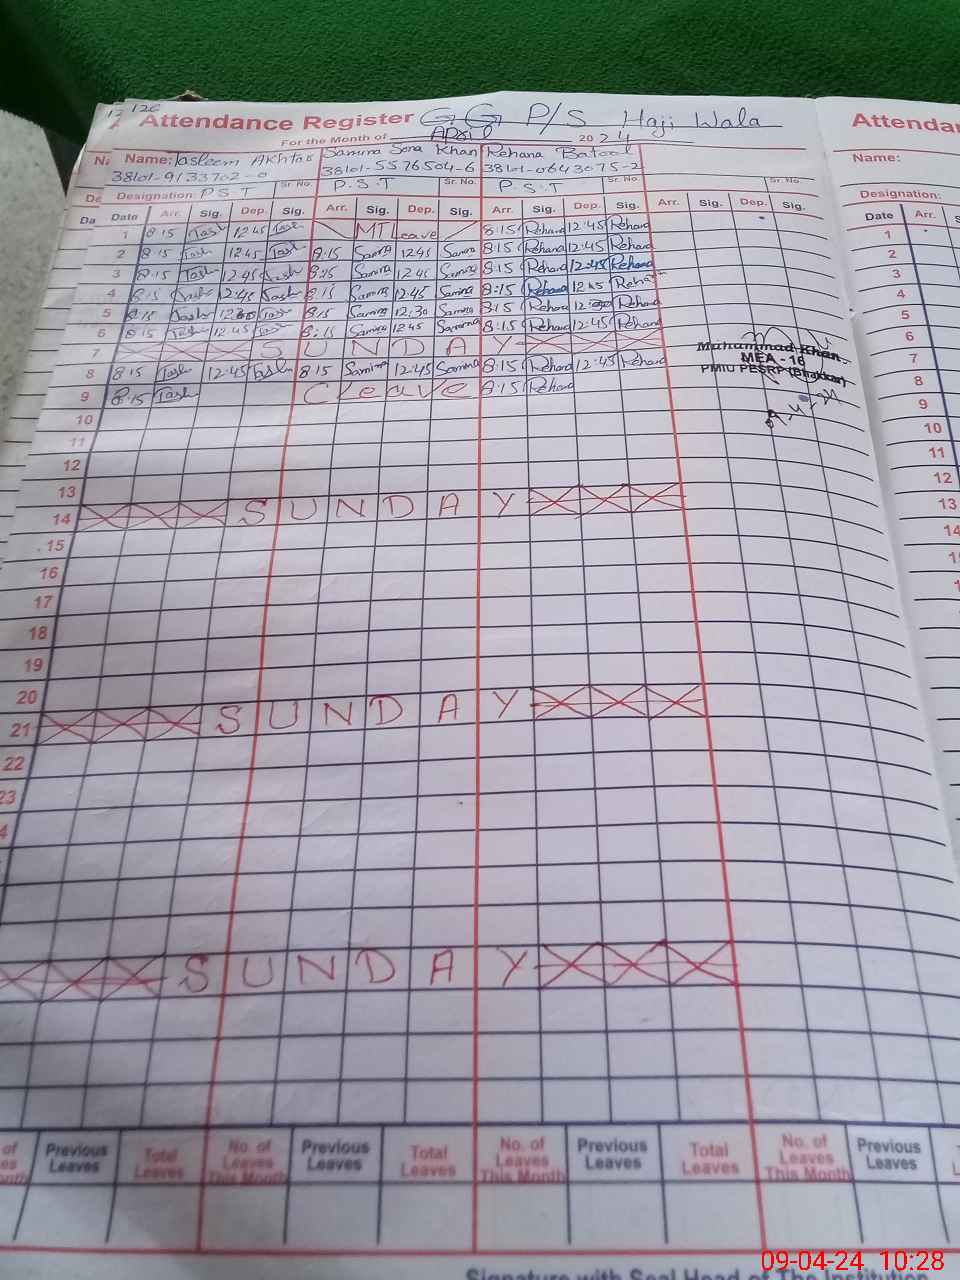 126
Attendance Register G G P/S Haji Wala
For the Month of April 2024
Name: Tasleem Akhtar Samina Sona Khan Rehana Batool
38101-9133702-0 38101-5576504-6 38101-0643075-2
Designation: P.S.T Sr. No. P.S.T Sr. No. P.S.T Sr. No.
Date Arr. Sig. Dep. Sig. Arr. Sig. Dep. Sig. Arr. Sig. Dep. Sig. Arr. Sig. Dep. Sig.
1 8:15 Tash 12:45 Tash MTLeave 8:15 Rehana 12:45 Rehana
2 8:15 Tash 12:45 Tash 8:15 Samina 12:45 Samina 8:15 Rehana 12:45 Rehana
3 8:15 Tash 12:45 Tash 8:15 Samina 12:45 Samina 8:15 Rehana 12:45 Rehana
4 8:15 Tash 12:45 Tash 8:15 Samina 12:45 Samina 8:15 Rehana 12:45 Rehana
5 8:15 Tash Tash 8:15 Samina 12:30 Samina 8:15 Rehana Rehana
6 8:15 Tash 12:45 Tash 8:15 Samina 12:45 Samina 8:15 Rehana 12:45 Rehana
7 SUNDAY
8 8:15 Tash 12:45 Tash 8:15 Samina 12:45 Samina 8:15 Rehana 12:45 Rehana
9 8:15 Tash Cleave 8:15 Rehana
Muhammad Khan
MEA - 16
PMIU PESRP (Bhakkar)
10
11
12
13
14 SUNDAY
15
16
17
18
19
20
21 SUNDAY
22
23
SUNDAY
Previous Leaves Total Leaves No. of Leaves This Month Previous Leaves Total Leaves No. of Leaves This Month Previous Leaves Total Leaves No. of Leaves This Month Previous Leaves
Signature with Seal Head of The Institut
Attendar
Name:
Designation:
Date Arr.
1
2
3
4
5
6
7
8
9
10
11
12
13
14
09-04-24 10:28